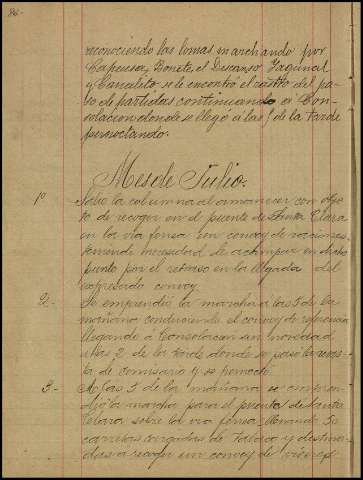 86-
reconociendo las lomas marchando por
Caperuza, Bonete, el Descanso Yagunal
y Canalito se le encontró el rastro del pa-
so de partidas continuando a Con-
solacion donde se llegó a las 5 de la tarde
pernoctando.
Mes de Julio.
1º Salio la columna al amanecer con obje
to de recoger en el puente de Santa Clara
en la via ferrea un convoy de raciones,
teniendo necesidad de acampar en dicho
punto por el retraso en la llegada del
expresado convoy.
2- Se emprendió la marcha a las 5 de la
mañana conduciendo el convoy de referencia
llegando á Consolacion sin novedad
a las 2 de la tarde donde se pasó la revis-
ta de comisario y se pernoctó.
3- A las 5 de la mañana se empren-
dió la marcha para el puente de Santa
Clara sobre la via ferrea llevando 50
carretas cargadas de Tabaco y destina-
das a recoger un convoy de viveres